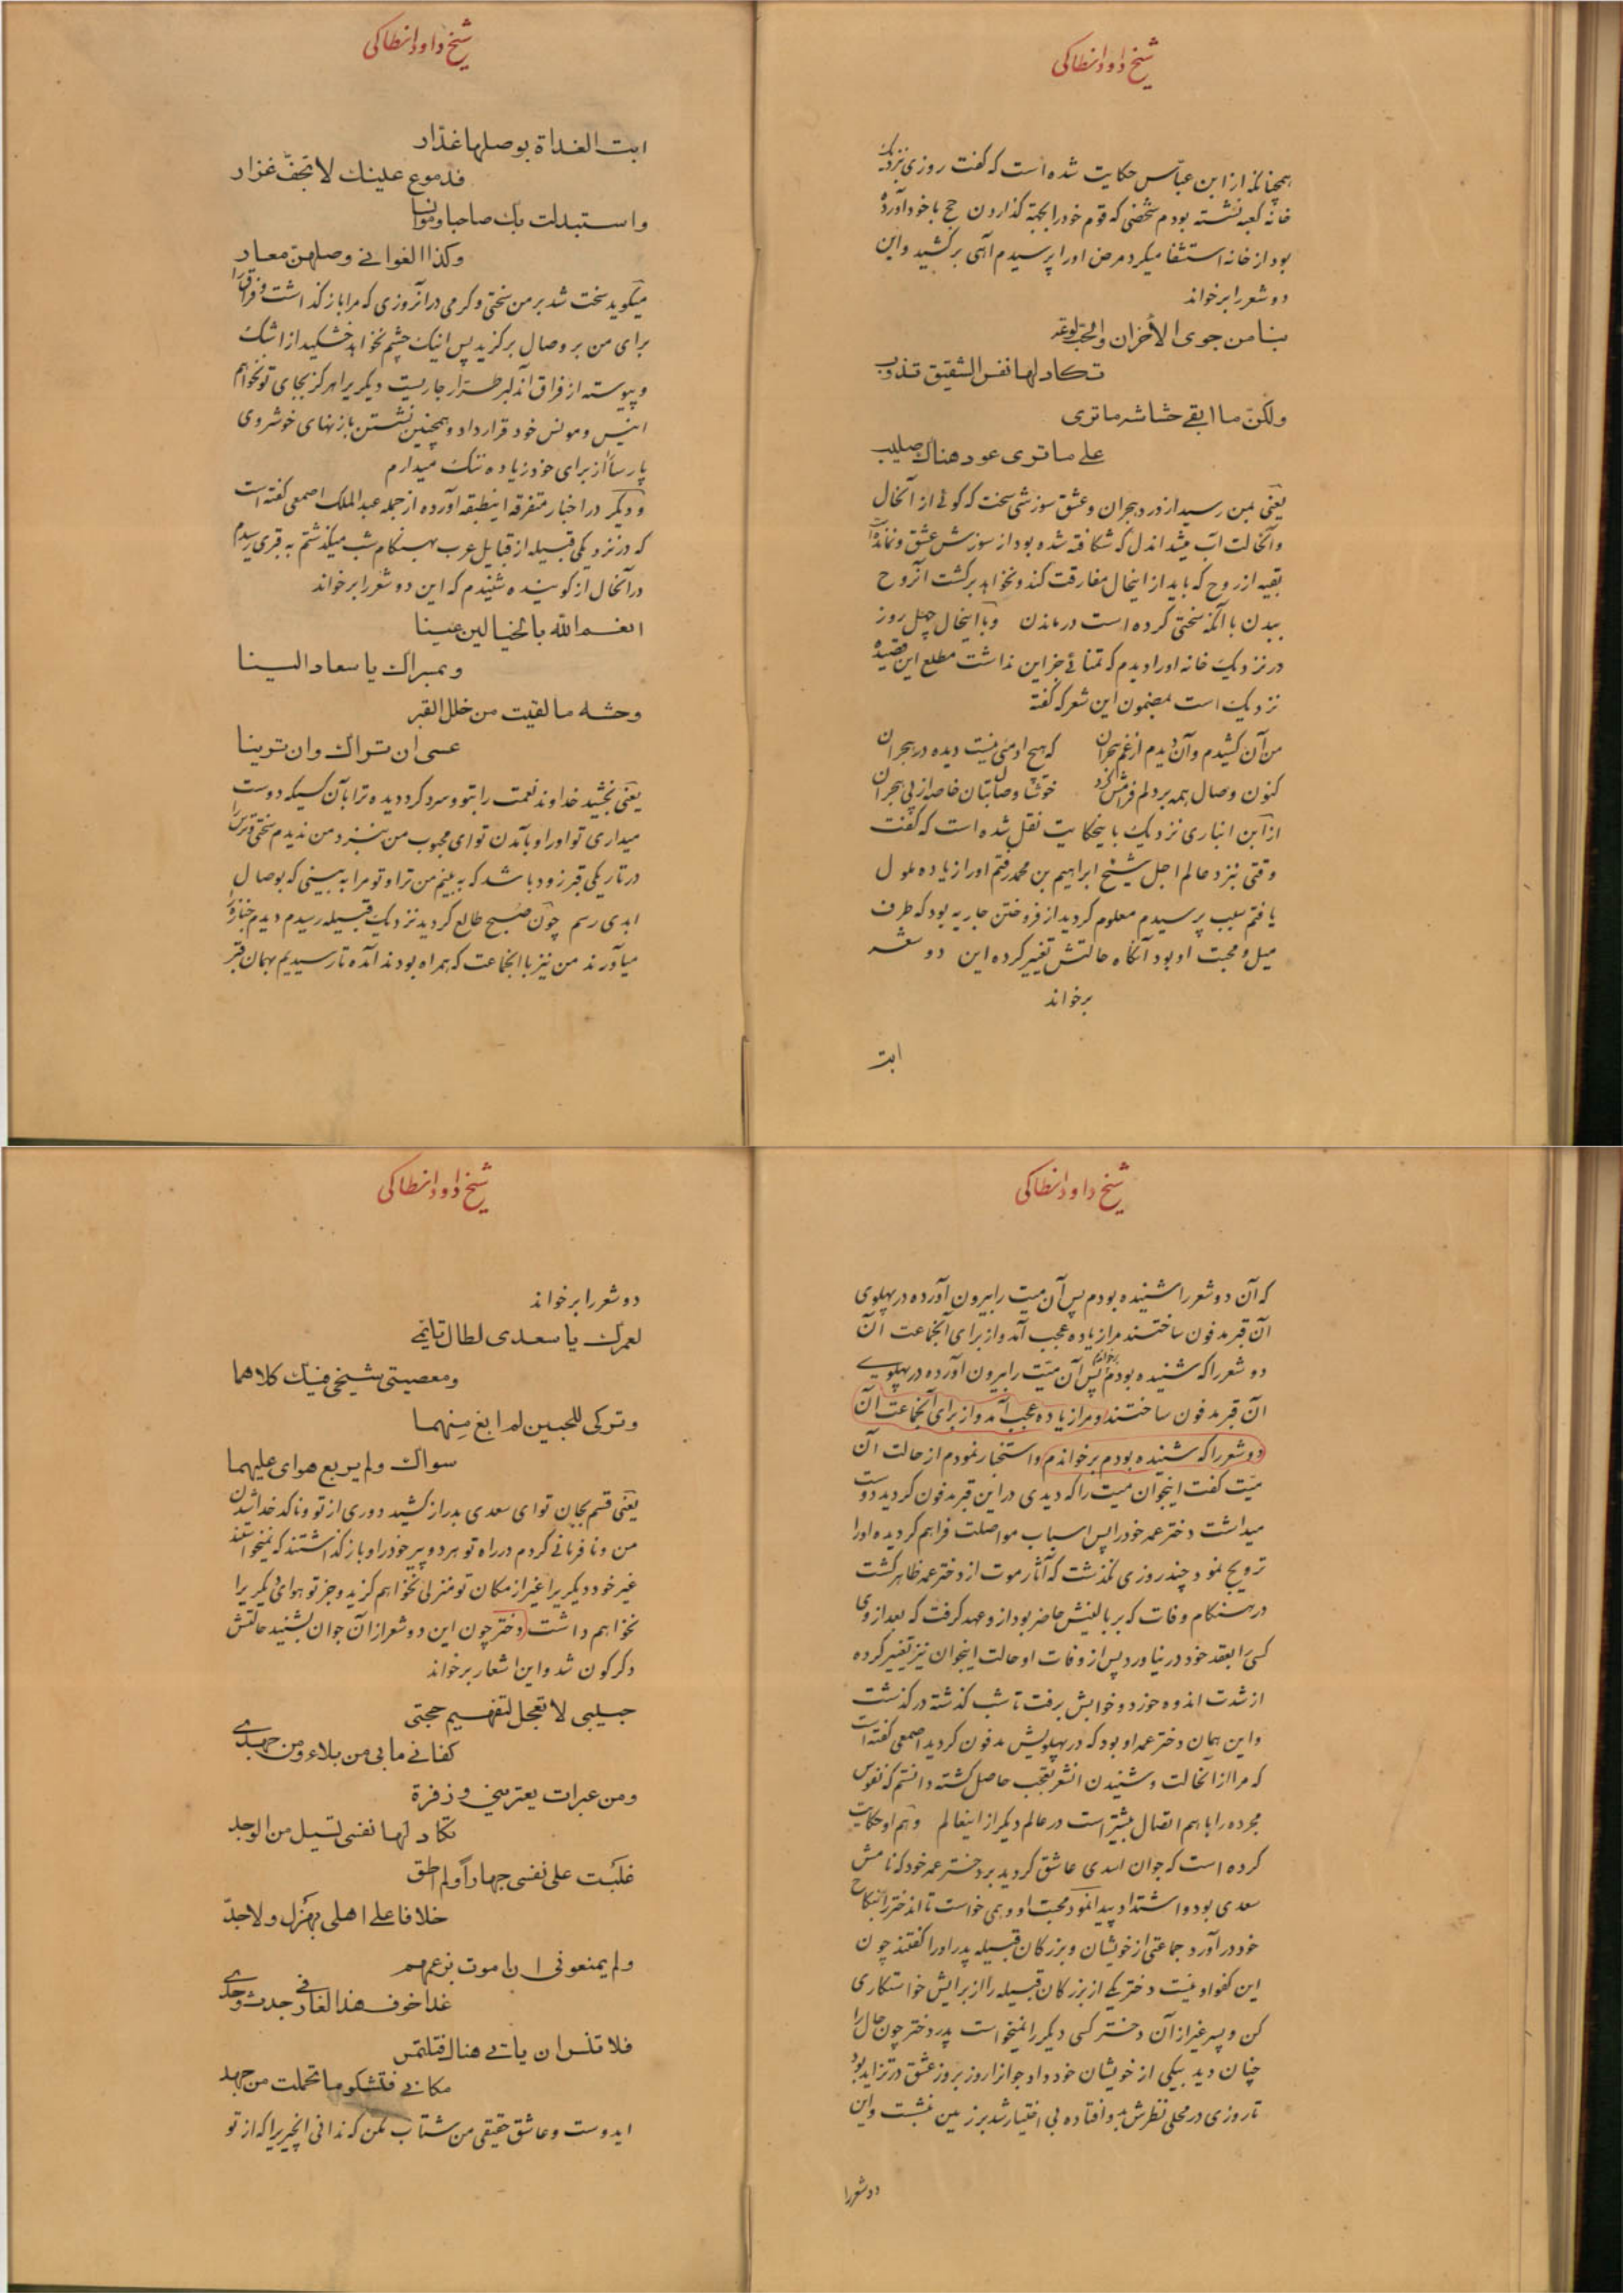 شیخ داود انطاکی
همچنانکه از ابن عباس حکایت شده است که گفت روزی نزدیک
خانه کعبه نشسته بودم شخصی که قوم خود را بجهة گذاردن حج با خود آورده
بود از خانه استشفا میکرد مرض اورا پرسیدم آهی برکشید و این
دو شعر را برخواند
بنا من جوی الأحزان والحب لوعة
تکاد لها نفس الشقیق تذوب
ولکن ما ابقی حشاشه ما تری
علی ما تری عود هناک صلیب
یعنی بمن رسید از درد هجران و عشق سوزشی سخت که گوئی از آنحال
وآنحالت آب میشد اندل که شکافته شده بود از سوزش عشق و نمانده
بقیه از روح که باید از اینحال مفارقت کند و نخواهد برگشت آنروح
ببدن با آنکه سختی کرده است در ماندن و با اینحال چهل روز
در نزدیک خانه اورا دیدم که تمنائی جز این نداشت مطلع این قصیده
نزدیک است بمضمون این شعر که گفته
من آن کشیدم و آن دیدم از غم هجران که هیچ ادمئی نیست دیده در هجران
کنون وصال همه بر دلم فراموش کرد خوشا وصال بتان خاصه از پی هجران
از ابن انباری نزدیک باینحکایت نقل شده است که گفت
وقتی نزد عالم اجل شیخ ابراهیم بن محمد رفتم اورا زیاده ملول
یافتم سبب پرسیدم معلوم گردید از فروختن جاریه بود که طرف
میل و محبت او بود آنگاه حالتش تغییر کرده این دو شعر
برخواند
ابت
شیخ داود انطاکی
ابت الغداة بوصلها غدّار
فدموع علینک لا تجفّ غزار
واستبدلت بک صاحبا وموانسا
وکذا الغوانی وصلهن معار
میگوید سخت شد بر من سختی و گرمی در آنروزی که مرا باز گذاشت و فراق را
برای من بر وصال برگزید پس اینک چشم نخواهد خشکید از اشک
و پیوسته از فراق آن دلبر طرار جاریست دیگر یرا هرگز بجای تو نخواهم
انیس و مونس خود قرار داد و همچنین نشستن با زنهای خوشروی
پارسا از برای خود زیاده ننگ میدارم
و دیگر در اخبار متفرقه اینطبقه آورده از جمله عبدالملک اصمعی گفته است
که در نزدیکی قبیله از قبایل عرب بهنگام شب میگذشتم به قبری رسیدم
در آنحال از گوینده شنیدم که این دو شعر را برخواند
انعم الله بالخیالین عینا
وبمسراک یا سعاد الینا
وحشه ما لقیت من خلل القبر
عسی ان تراک وان ترینا
یعنی بخشید خداوند نعمت را بتو و سرد کرد دیده ترا بآن کسیکه دوست
میداری تو اورا و بآمدن تو ای محبوب من بنزد من ندیدم سختی و ترس را
در تاریکی قبر زود باشد که به بینم من ترا و تو مرا به بینی که بوصال
ابدی رسم چون صبح طالع گردید نزدیک قبیله رسیدم دیدم جنازه را
میآورند من نیز با انجماعت که همراه بودند آمده تا رسیدیم بهمان قبر
شیخ داود انطاکی
که آن دو شعر را شنیده بودم پس آن میت را بیرون آورده در پهلوی
آن قبر مدفون ساختند مرا زیاده عجب آمد و از برای آنجماعت آن
دو شعر را که شنیده بودم برخواندم پس آن میّت را بیرون آورده در پهلوی
آن قبر مدفون ساختند و مرا زیاده عجب آمد و از برای آنجماعت آن
دو شعر را که شنیده بودم برخواندم و استخبار نمودم از حالت آن
میّت گفت اینجوان میت را که دیدی در این قبر مدفون گردید دوست
میداشت دختر عمه خود را پس اسباب مواصلت فراهم گردیده اورا
ترویج نمود چند روزی نگذشت که آثار موت از دختر عمه ظاهر گشت
در هنگام وفات که بر بالینش حاضر بود از و عهد گرفت که بعد از وی
کسی را بعقد خود در نیاورد پس از وفات او حالت اینجوان نیز تغییر کرده
از شدت اندوه خورد و خوابش برفت تا شب گذشته در گذشت
و این همان دختر عمه او بود که در پهلویش مدفون گردید اصمعی گفته است
که مرا از آنحالت و شنیدن انشعر تعجب حاصل گشته دانستم که نفوس
مجرده را با هم اتصال بیشتر است در عالم دیگر از اینعالم و هم او حکایت
کرده است که جوان اسدی عاشق گردید بر دختر عمه خود که نامش
سعدی بود و اشتداد پیدا نمود محبت او و همی خواست تا اندختر را بنکاح
خود در آورد جماعتی از خویشان و بزرگان قبیله پدر اورا گفتند چون
این کفو او نیست دختر یکی از بزرگان قبیله را از برایش خواستگاری
کن و پسر غیر از آن دختر کسی دیگر را نمیخواست پدر دختر چون حال را
چنان دید بیکی از خویشان خود داد جوانرا روز بروز عشق در تزاید بود
تا روزی در محلی نظرش بدو افتاده بی اختیار شد بر زمین نشست و این
دو شعر را
شیخ داود انطاکی
دو شعر را برخواند
لعمرک یا سعدی لطال تایمی
ومعصیتی شیخی فیک کلاهما
وترکی للحبین لم ابغ منهما
سواک ولم یربع هوای علیهما
یعنی قسم بجان تو ای سعدی بدراز کشید دوری از تو و ناکدخدا شدن
من و نافرمانی کردم در راه تو هر دو پیر خود را و باز گذاشتند که نمیخواستند
غیر خود و دیگریرا غیر از مکان تو منزلی نخواهم گزید و جز تو هوای دیگریرا
نخواهم داشت دختر چون این دو شعر از آن جوان بشنید حالتش
دگرگون شد و این اشعار برخواند
حبیبی لا تعجل لتفهیم حجتی
کفانی ما بی من بلاء ومن جهدی
ومن عبرات یعتریني وزفرة
تکاد لها نفسی تسیل من الوجد
غلبت علی نفسی جهاراً ولم اطق
خلافا علی اهلی بهزل ولا جدّ
ولم یمنعونی ان اموت بزعمهم
غدا خوف هذا العار فی جدث وحدی
فلا تنس ان یاتی هناک فتلتمس
مکانی فتشکو ما تحملت من جهد
ایدوست و عاشق حقیقی من شتاب مکن که ندانی انچیزیرا که از تو